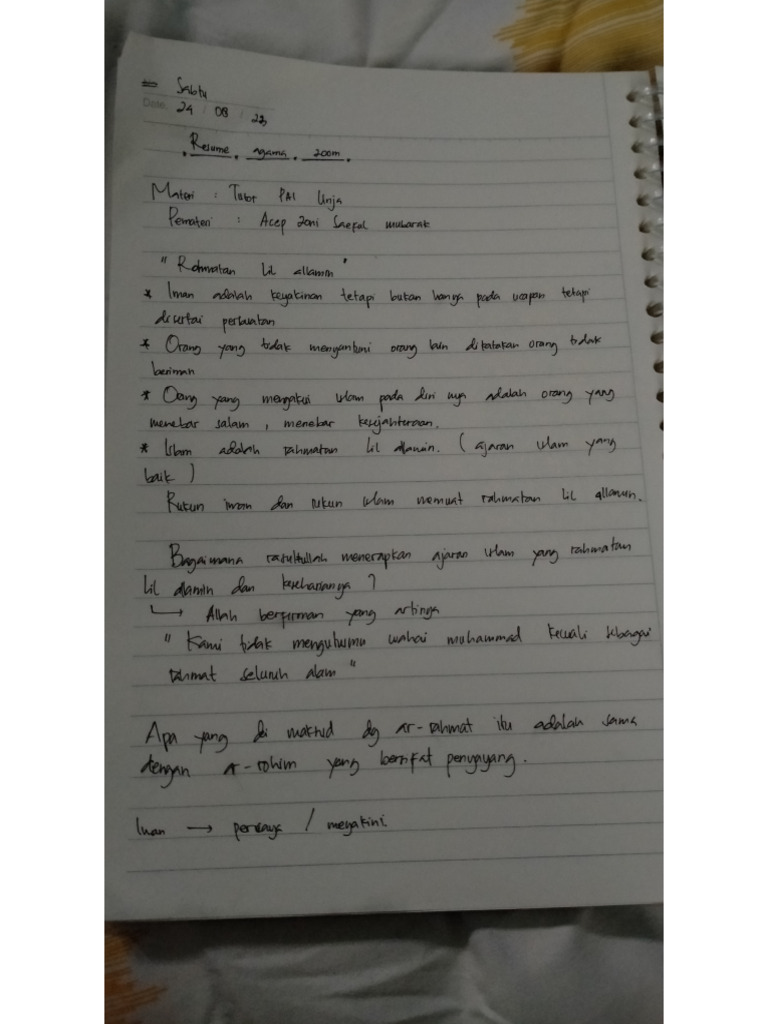 Sabtu
Date. 24 / 08 / 23
Resume agama zoom
Materi : Tutor PAI Unja
Pemateri : Acep Zoni Saeful mubarak
" Rahmatan Lil allamin "
* Iman adalah keyakinan tetapi bukan hanya pada ucapan tetapi
disertai perbuatan
* Orang yang tidak menyantuni orang lain dikatakan orang tidak
beriman
* Orang yang mengakui islam pada diri nya adalah orang yang
menebar salam , menebar kesejahteraan.
* Islam adalah rahmatan lil allamin. ( ajaran islam yang
baik )
Rukun iman dan rukun islam memuat rahmatan lil allamin.
Bagaimana rasultullah menerapkan ajaran islam yang rahmatan
Lil allamin dan kesehariannya ?
↳ Allah berfirman yang artinya
" Kami tidak mengutusmu wahai muhammad kecuali sebagai
rahmat seluruh alam "
Apa yang di maksud dg ar-rahmat itu adalah sama
dengan ar-rohim yang bersifat penyayang.
Iman → percaya / meyakini